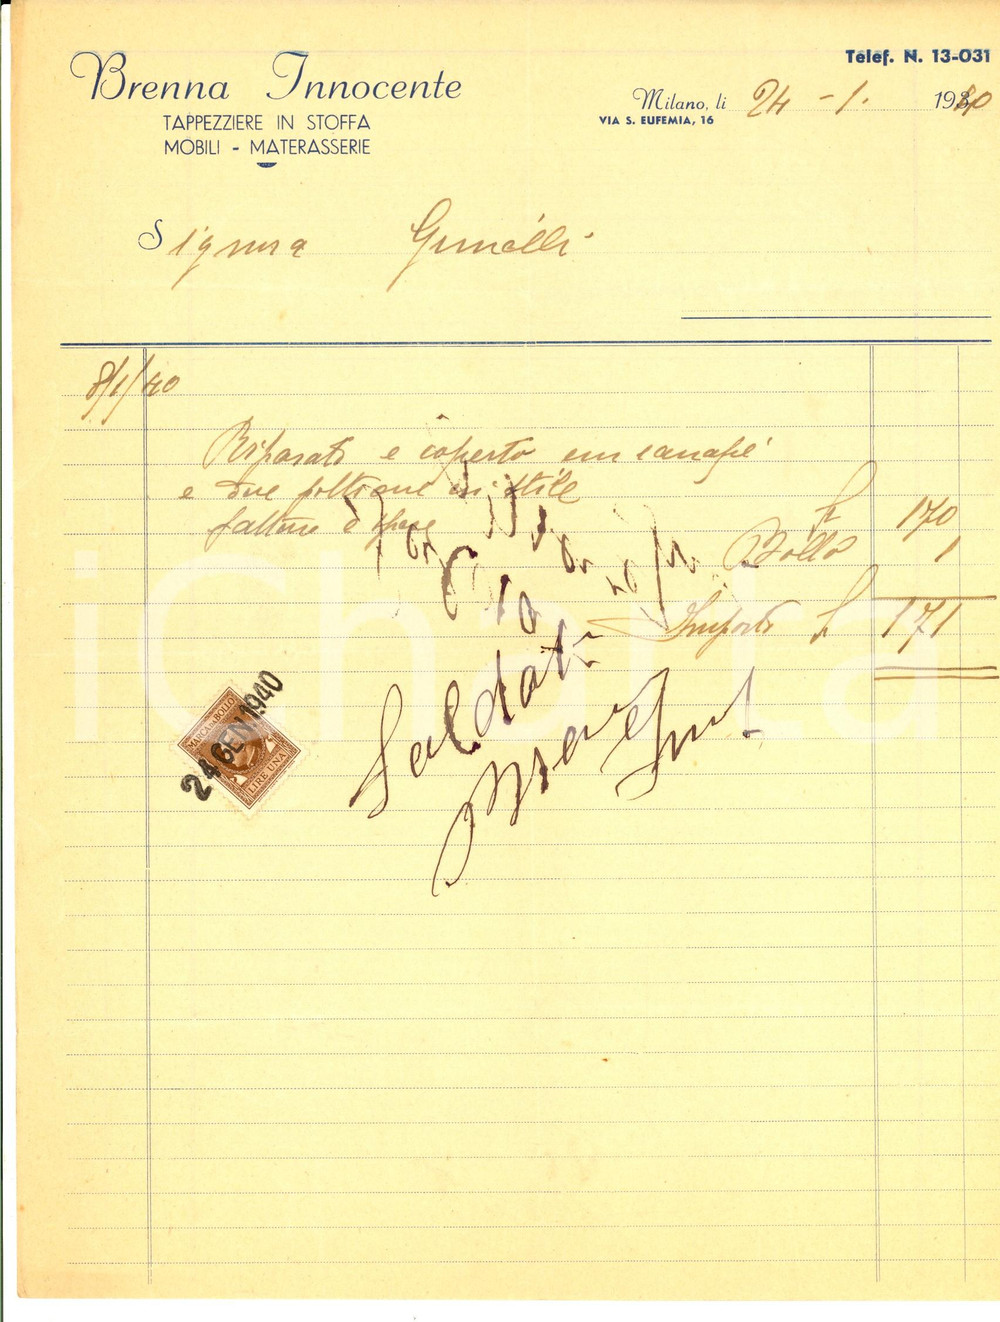 Brenna Innocente
TAPPEZZIERE IN STOFFA
MOBILI - MATERASSERIE
Telef. N. 13-031
Milano, li 24 - 1. 1940
VIA S. EUFEMIA, 16
Signora Gunelli
8/1/40
Riparato e coperto un canapé
e due poltrone in stile
fatture e spese £ 170
Bollo 1
Importo £ 171
Saldato
MARCA DA BOLLO
LIRE UNA
24 GEN. 1940
iCharta